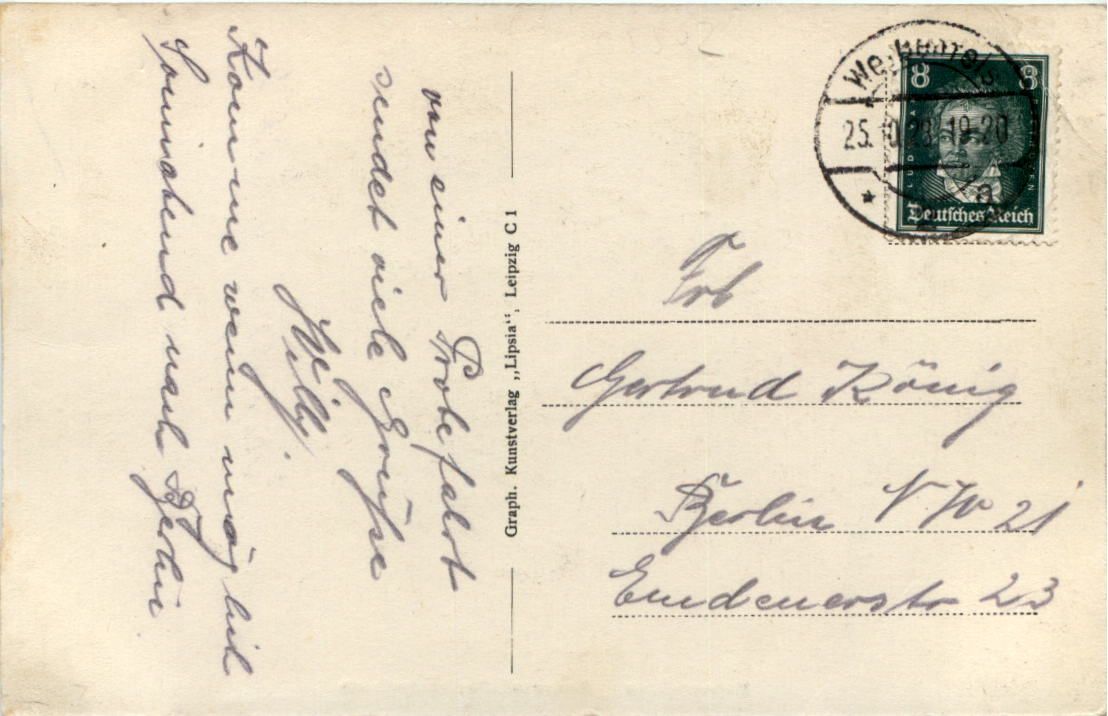 von einer Probefahrt
sendet viele Grüße
Willy.
Komme wenn möglich
Sonnabend nach Berlin
Graph. Kunstverlag „Lipsia“, Leipzig C 1
Weißenfels
25.10.28. 19-20
* a
8 8
Deutsches Reich
Gertrud König
Berlin N W 21
Emdenerstr 23